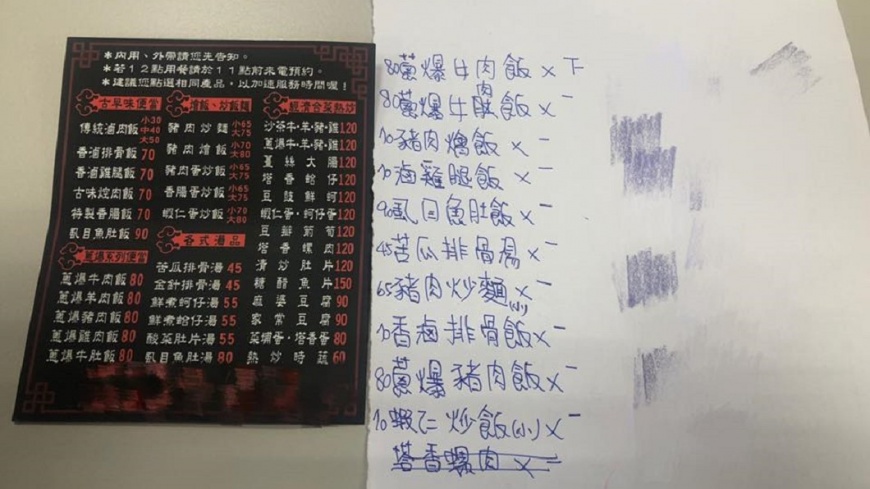 *內用、外帶請您先告知。
*若12點用餐請於11點前來電預約。
*建議您點選相同產品,以加速服務時間喔!
古早味便當
傳統滷肉飯 小30 中40 大50
香滷排骨飯 70
香滷雞腿飯 70
古味焢肉飯 70
特製香腸飯 70
虱目魚肚飯 90
蔥爆系列便當
蔥爆牛肉飯 80
蔥爆羊肉飯 80
蔥爆豬肉飯 80
蔥爆雞肉飯 80
蔥爆牛肚飯 80
燴飯、炒飯麵
豬肉炒麵 小65 大75
豬肉燴飯 小70 大80
豬肉蛋炒飯 小65 大75
香腸蛋炒飯 小65 大75
蝦仁蛋炒飯 小70 大80
各式湯品
苦瓜排骨湯 45
金針排骨湯 45
鮮煮蚵仔湯 55
鮮煮蛤仔湯 55
酸菜肚片湯 55
虱目魚肚湯 80
經濟合菜熱炒
沙茶牛·羊·豬·雞 120
蔥爆牛·羊·豬·雞 120
薑絲大腸 120
塔香蛤仔 120
豆鼓鮮蚵 120
蝦仁蛋·蚵仔蛋 120
豆瓣筍 120
塔香螺肉 120
清炒肚片 120
糖醋魚片 150
麻婆豆腐 90
家常豆腐 90
菜脯蛋·塔香蛋 80
熱炒時蔬 60
80蔥爆牛肉飯 x 下
肉
80蔥爆牛肚飯 x 一
70豬肉燴飯 x 一
70滷雞腿飯 x 一
90虱目魚肚飯 x 一
45苦瓜排骨湯 x 一
65豬肉炒麵(小) x 一
70香滷排骨飯 x 一
80蔥爆豬肉飯 x 一
70蝦仁炒飯(小) x 一
塔香螺肉 x 一